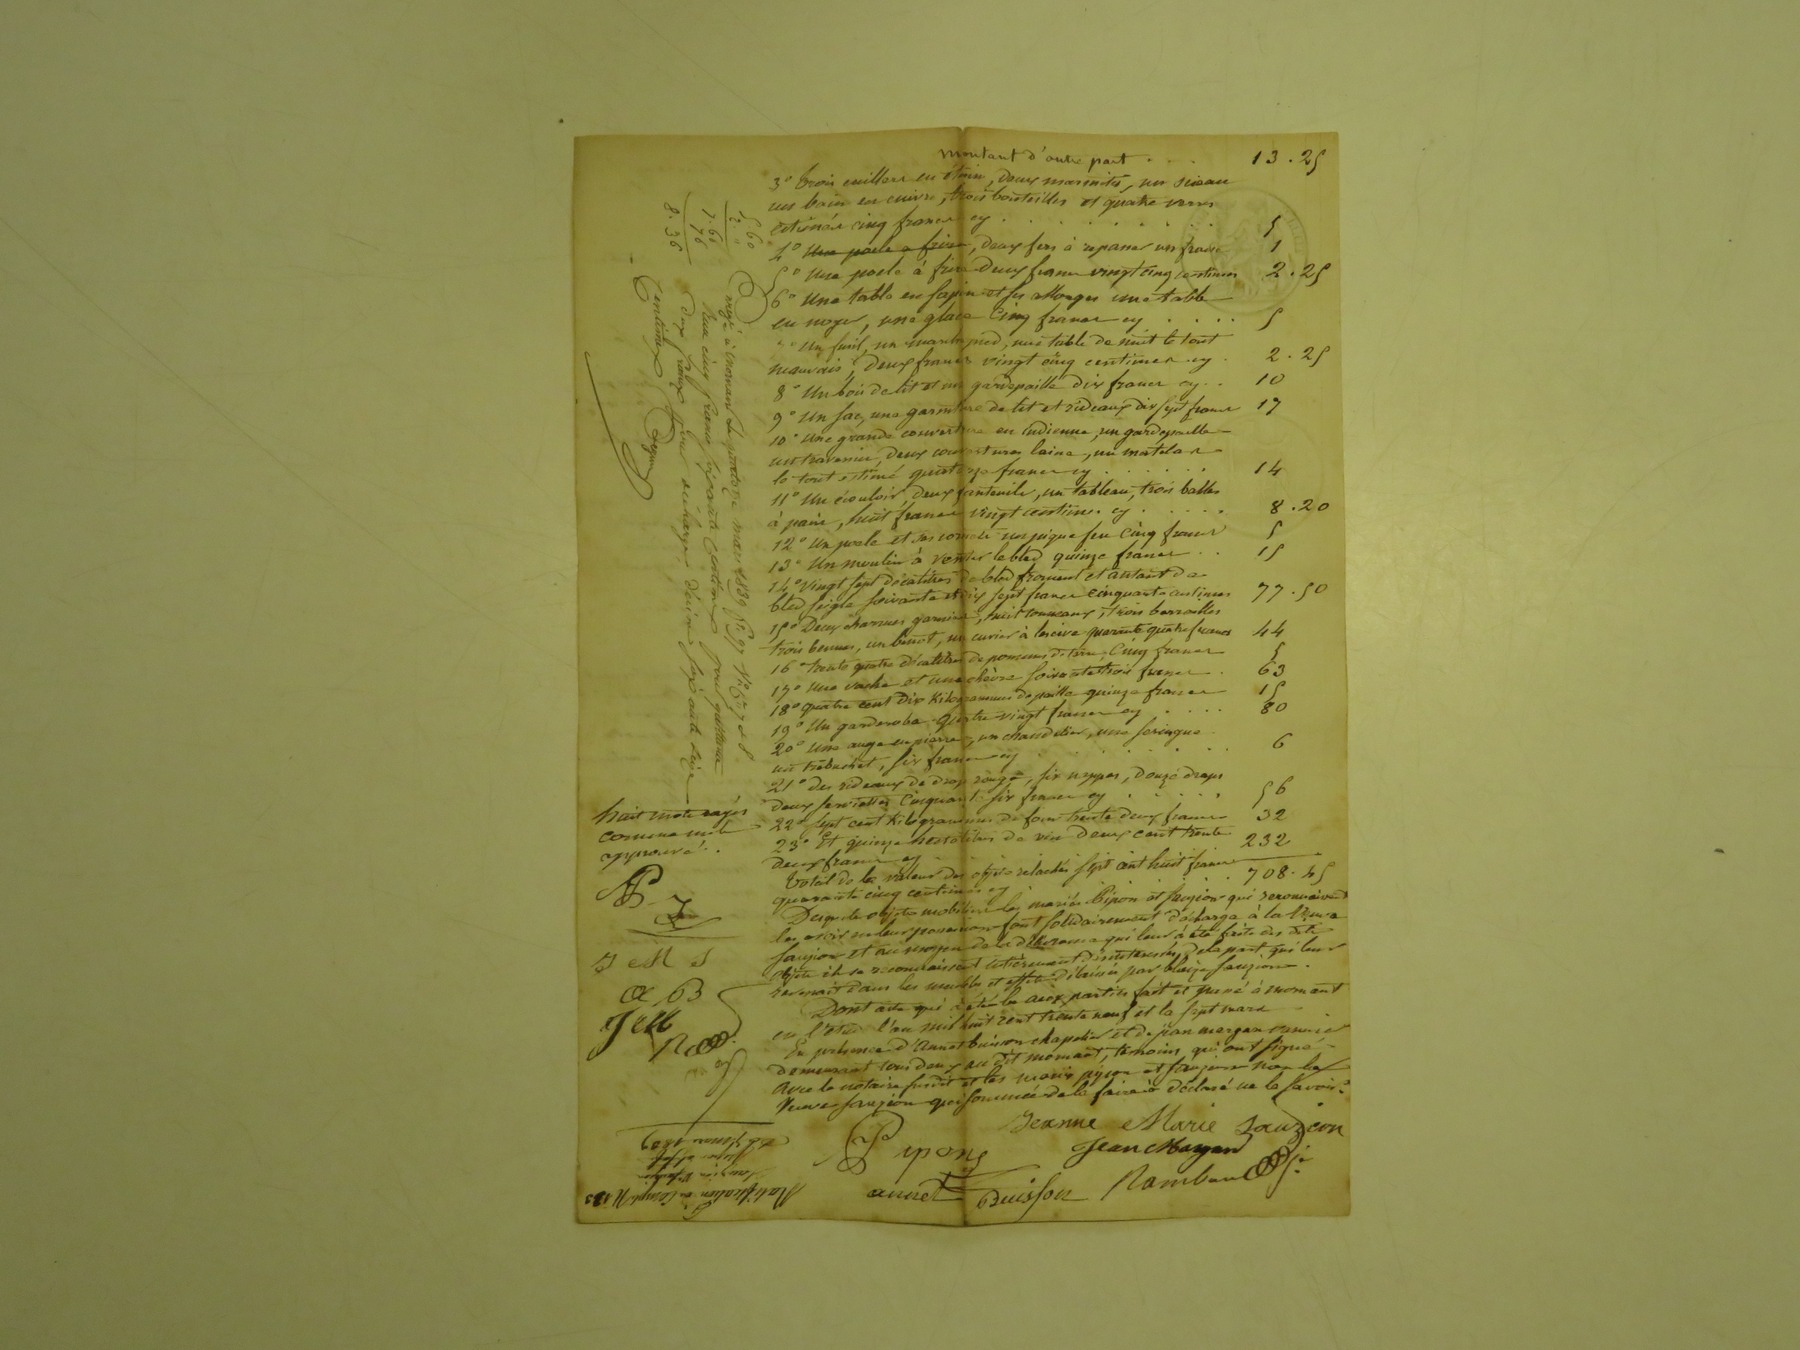 montant d'autre part . . . . 13.25
3° trois cuillers en étain, deux marmites, un siceau
un bain en cuivre, trois bouteilles et quatre verres
estimés cinq francs cy . . . . . . . . 5
4° Une poele a frire, deux fers à repasser un franc 1
5° Une poele à frire deux francs vingt cinq centimes 2.25
6° Une table en sapin et ses allonges une table
en noyer, une glace Cinq francs cy . . . . . 5
Un fusil, un marchepied, une table de nuit le tout
mauvais, deux francs vingt cinq centimes cy . 2.25
8° Un bois de lit et un gardepaille dix francs cy . . 10
9° Un sac, une garniture de lit et rideaux dix sept francs 17
10° Une grande couverture en indienne, un gardepaille
un traversin, deux couvertures laine, un matelas
le tout estimé quatorze francs cy . . . . . . 14
11° Un écouloir, deux fauteuils, un tableau, trois balles
à pain, huit francs vingt centimes cy . . . . . 8.20
12° Un poele et ses cornets un pique feu Cinq francs 5
13° Un moulin à venter le bled quinze francs . . 15
14° Vingt sept décalitres de bled froment et autant de
bled seigle soixante et dix sept francs cinquante centimes 77.50
15° Deux charrues garnies, huit tonneaux, trois barrailles
trois bennes, un benot, un cuvier à lescive quarante quatre francs 44
16° trente quatre décalitres de pommes de terre, Cinq francs 5
17° Une vache et une chèvre soixante trois francs . 63
18° quatre cent dix kilogrammes de paille quinze francs 15
19° Un garderobe quatre vingt francs cy . . . . 80
20° Une auge en pierre, un chandelier, une seringue
un trébuchet, six francs cy . . . . . . . . 6
21° Des rideaux de drap rouge, six nappes, douze draps
deux serviettes Cinquante six francs cy . . . . . 56
22° Sept cent kilogrammes de foin trente deux francs 32
23° Et quinze hectolitres de vin deux cent trente
deux francs cy . . . . . . . . 232
Total de la valeur des objets relachés sept cent huit francs
quarante cinq centimes cy . . . . . 708.45
Desquels objets mobiliers les mariés Pipon et Sauzion qui reconnaissent
les avoir en leur possession font solidairement décharge à la Veuve
Sauzion et au moyen de la délivrance qui leur a été faite des dits
objets ils se reconnaissent entièrement désintéressés de la part qui leur
revenait dans les meubles et effets délaissés par blaize Sauzion.
Dont acte qui a été lu aux parties fait et passé à mornant
en l'étude l'an mil huit cent trente neuf et le sept mars
En présence d'Annet buisson chapelier et de jean margan
demeurant tous deux au dit mornant, témoins qui ont signé
avec le notaire susdit et les mariés pipon et sauzion non la
Veuve Sauzion qui sommée de le faire a déclaré ne le savoir.
Jeanne Marie Sauzion
Pipon Jean Margan
annet Buisson Rambaud
huit mots rayés
comme nuls
approuvé.
JP
J M S
a B
JM
R
5.60
2. "
7.60
76
8.36
Enregé à mornant le quatorze mars 1839
Reçu cinq francs soixante centimes pour quittance
deux francs pour décharge, décime soixante seize
centimes